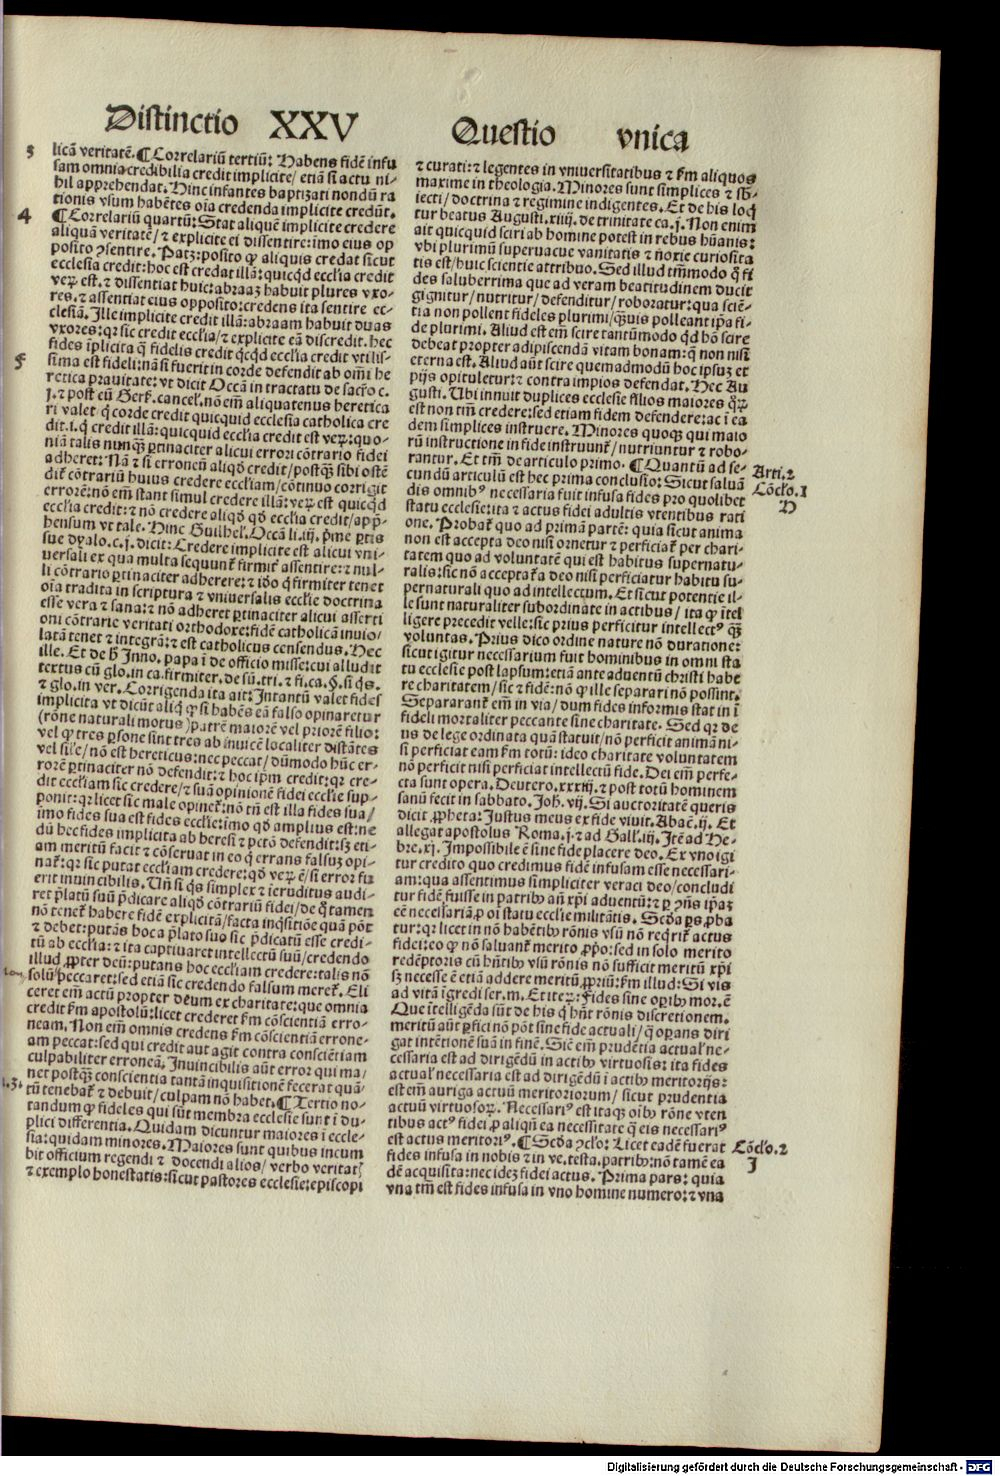 Distinctio XXV
Questio vnica
3
licā veritatē. ¶ Correlariū tertiū: Habens fidē infu
sam omnia credibilia credit implicite/ etiā si actu ni-
hil apprehendat. Hinc infantes baptizati nondū ra
tionis vsum habētes oīa credenda implicite credūt.
4
¶ Correlariū quartū: Stat aliquē implicite credere
aliquā veritatē/ ⁊ explicite ei dissentire: imo eius op
posito ꝯsentire. Patꝫ: posito ꝙ aliquis credat sicut
ecclesia credit: hoc est credat illā: quicqd eccl'ia credit
veꝝ est. ⁊ dissentiat huic: abraaꝫ habuit plures vxo-
res. ⁊ assentiat eius opposito: credens ita sentire ec-
clesiā. Ille implicite credit illā: abraam habuit duas
vxores: qr sic credit eccl'ia/ ⁊ explicite eā discredit. hec
5
fides īplicita q̄ fidelis credit qcqd eccl'ia credit vtilis-
sima est fideli: nā si fuerit in corde defendit ab oīm he
retica prauitate: vt dicit Occā in tractatu de sacro c.
j. ⁊ post eū Gerß. cancel'. nō em̄ aliquatenus heretica
ri valet q corde credit quicquid ecclesia catholica cre
dit. i. q credit illā: quicquid eccl'ia credit est veꝝ: quo-
niā talis nunq̄ꝫ ꝑtinaciter alicui errori cōtrario fidei
adheret: Nā ⁊ si erroneū aliqd̄ credit/ postq̄ꝫ sibi ostē
dit̄ cōtrariū huius credere eccl'iam/ cōtinuo corrigit
errorē: nō em̄ stant simul credere illā: veꝝ est quicqd
eccl'ia credit: ⁊ nō credere aliqd̄ qd̄ eccl'ia credit/ app̄-
hensum vt tale. Hinc Guilhel'. Occā li. iij. p̄me ꝑtis
sue dyalo. c. j. dicit: Credere implicite est alicui vni-
uersali ex qua multa sequunt̄ firmit̄ assentire: ⁊ nul-
li cōtrario ꝑtinaciter adherere: ⁊ iō q firmiter tenet
oīa tradita in scriptura ⁊ vniuersalis eccl'ie doctrina
esse vera ⁊ sana: ⁊ nō adheret ꝑtinaciter alicui asserti
oni cōtrarie veritati orthodoxe: fidē catholicā inuio/
latā tenet ⁊ integrā: ⁊ est catholicus censendus. Hec
ille. Et de h̄ Inno. papa ī de officio misse: cui alludit
textus cū glo. in ca. firmiter. de sū. tri. ⁊ fi. ca. §. si qs.
⁊ glo. in ver. Corrigenda ita ait: Intantū valet fides
implicita vt dicūt aliq ꝙ si habēs eā falso opinaretur
(rōne naturali motus) patrē maiorē vel priorē filio:
vel ꝙ tres ꝑsone sint tres ab inuicē localiter distātes
vel sil'e/ nō est hereticus: nec peccat/ dūmodo hūc er-
rorē ꝑtinaciter nō defendit: ⁊ hoc ip̄m credit: qr cre-
dit eccl'iam sic credere/ ⁊ suā opinionē fidei eccl'ie sup-
ponit: qr licet sic male opinet̄: nō tn̄ est illa fides sua/
imo fides sua est fides eccl'ie: imo qd̄ amplius est: ne
dū hec fides implicita ab heresi ⁊ pctō defendit: sꝫ eti-
am meritū facit ⁊ cōseruat in eo q errans falsuꝫ opi-
nat̄: qr sic putat eccl'iam credere: qd̄ veꝝ ē/ si error fu
erit inuincibilis. Vn̄ si qs simplex ⁊ ieruditus audi-
ret p̄latū suū p̄dicare aliqd̄ cōtrariū fidei/ de q̄ tamen
nō tenet̄ habere fidē explicitā/ facta inqsitiōe quā pōt
⁊ debet: putās hoc a p̄lato suo sic p̄dicatū esse credi-
tū ab eccl'ia: ⁊ ita captiuaret intellectū suū/ credendo
illud ꝓpter deū: putans hoc eccl'iam credere: talis nō
solū peccaret: sed etiā sic credendo falsum meret̄. Eli
ceret em̄ actū propter deum ex charitate: que omnia
credit ẜm apostolū: licet crederet ẜm cōscientiā erro-
neam. Non em̄ omnis credens ẜm cōscientiā errone-
am peccat: sed qui credit aut agit contra conscientiam
culpabiliter erroneā. Inuincibilis aūt error qui ma/
net postq̄ꝫ conscientia tantā inquisitionē fecerat quā-
tū tenebat̄ ⁊ debuit/ culpam nō habet. ¶ Tertio no-
tandum ꝙ fideles qui sūt membra ecclesie sunt ī du-
plici differentia. Quidam dicuntur maiores ī eccle-
sia: quidam minores. Maiores sunt quibus incum
bit officium regendi ⁊ docendi alios/ verbo veritatꝭ
⁊ exemplo honestatis: sicut pastores ecclesie: episcopi
⁊ curati: ⁊ legentes in vniuersitatibus ⁊ ẜm aliquos
maxime in theologia. Minores sunt simplices ⁊ sb̄-
iecti/ doctrina ⁊ regimine indigentes. Et de his loq̄
tur beatus Augusti. xiiij. de trinitate ca. j. Non enim
ait quicquid sciri ab homine potest in rebus hūanis:
vbi plurimū superuacue vanitatis ⁊ noxie curiosita
tis est/ huic scientie attribuo. Sed illud tm̄modo q̄ fi
des saluberrima que ad veram beatitudinem ducit
gignitur/ nutritur/ defenditur/ roboratur: qua sciē-
tia non pollent fideles plurimi/ q̄ꝫuis polleant ip̄a fi-
de plurimi. Aliud est em̄ scire tantūmodo qd̄ hō scire
debeat propter adipiscendā vitam bonam: q̄ non nisi
eterna est. Aliud aūt scire quemadmodū hoc ipsuꝫ et
pijs opituletur: ⁊ contra impios defendat. Hec Au
gusti. Vbi innuit duplices ecclesie filios maiores qꝝ
est non tm̄ credere: sed etiam fidem defendere: ac ī ea
dem simplices instruere. Minores quoqꝫ qui maio
rū instructione in fide instruunt̄/ nutriuntur ⁊ robo-
rantur. Et tm̄ de articulo primo. ¶ Quantū ad se-
Arti. 2
cundū articulū est hec prima conclusio: Sicut saluā
Cōcl'o. 1
dis omnibꝰ necessaria fuit infusa fides pro quolibet
H
statu ecclesie: ita ⁊ actus fidei adultis vtentibus rati
one. Probat̄ quo ad primā partē: quia sicut anima
non est accepta deo nisi ornetur ⁊ perficiat̄ per chari-
tatem quo ad voluntatē qui est habitus supernatu-
ralis: sic nō acceptat̄a deo nisi perficiatur habitu su-
pernaturali quo ad intellectum. Et sicut potentie il-
le sunt naturaliter subordinate in actibus/ ita ꝙ ītel
ligere precedit velle: sic prius perficitur intellectꝰ q̄ꝫ
voluntas. Prius dico ordine nature nō duratione:
sicut igitur necessarium fuit hominibus in omni sta
tu ecclesie post lapsum: etiā ante aduentū christi habe
re charitatem/ sic ⁊ fidē: nō ꝙ ille separari nō possint.
Separarant̄ em̄ in via/ dum fides informis stat in ī
fideli mortaliter peccante sine charitate. Sed qr de
us de lege ordinata quā statuit/ nō perficit animā ni-
si perficiat eam ẜm totū: ideo charitate voluntatem
nō perficit nisi perficiat intellectū fide. Dei em̄ perfe-
cta sunt opera. Deutero. xxxiij. ⁊ post totū hominem
sanū fecit in sabbato. Joh. vij. Si auctoritatē queris
dicit ꝓpheta: Justus meus ex fide viuit. Abac. ij. Et
allegat apostolus Roma. j. ⁊ ad Gall'. iij. Itē ad He-
bre. xj. Impossibile ē sine fide placere deo. Ex vno igi
tur credito quo credimus fidē infusam esse necessari-
am: qua assentimus simpliciter veraci deo/ concludi
tur fidē fuisse in patribꝰ an̄ xp̄i aduentū: ⁊ ꝑ ꝯn̄s ip̄aꝫ
eē necessariā ꝓ oī statu eccl'ie militātis. Scd̓a ꝑs ꝓba
tur: qꝛ licet in nō habētibꝰ rōnis vsū nō reqrit̄ actus
fidei: eo ꝙ nō saluant̄ merito ꝓpo: sed in solo merito
redēptoris cū hn̄tibꝰ vsū rōnis nō sufficit meritū xp̄i
sꝫ necesse ē etiā addere meritū ꝓpriū: ẜm illud: Si vis
ad vitā īgredi ser. m. Et iteꝝ: Fides sine oꝑibꝰ mor. ē
Que ītelligēda sūt de his q hn̄t rōnis discretionem.
meritū aūt ꝑfici nō pōt sine fide actuali/ q̄ oꝑans diri
gat intētionē suā in finē. Sic̄ em̄ prudētia actual' ne-
cessaria est ad dirigēdū in actibꝰ virtuosis: ita fides
actual' necessaria est ad dirigēdū ī actibꝰ meritorijs:
est em̄ auriga actuū meritoriorum/ sicut prudentia
actuū virtuosoꝝ. Necessariꝰ est itaqꝫ oībꝰ rōne vten
tibus actꝰ fidei ꝓ aliqn̄ ea necessitate q̄ eis necessariꝰ
est actus meritoriꝰ. ¶ Scd̓a ꝯclo: Licet eadē fuerat
Cōcl'o. 2
fides infusa in nobis ⁊ in ve. testa. patribꝰ: nō tamē ea
J
dē acquisita: nec ideꝫ fidei actus. Prima pars: quia
vna tm̄ est fides infusa in vno homine numero: ⁊ vna
Digitalisierung gefördert durch die Deutsche Forschungsgemeinschaft - DFG